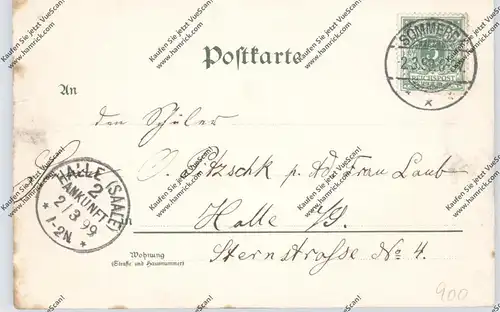 Postkarte
SÖMMERDA
2.3.
REICHSPOST
An
den Schüler
O. Pitzschk p. Ad. Frau Laub
HALLE (SAALE)
2
ANKUNFT
2/3 99
1-2N
in
Halle a/S.
Wohnung
(Straße und Hausnummer)
Sternstrasse No 4.
900
Kaufen Sie jetzt VueScan!
www.hamrick.com